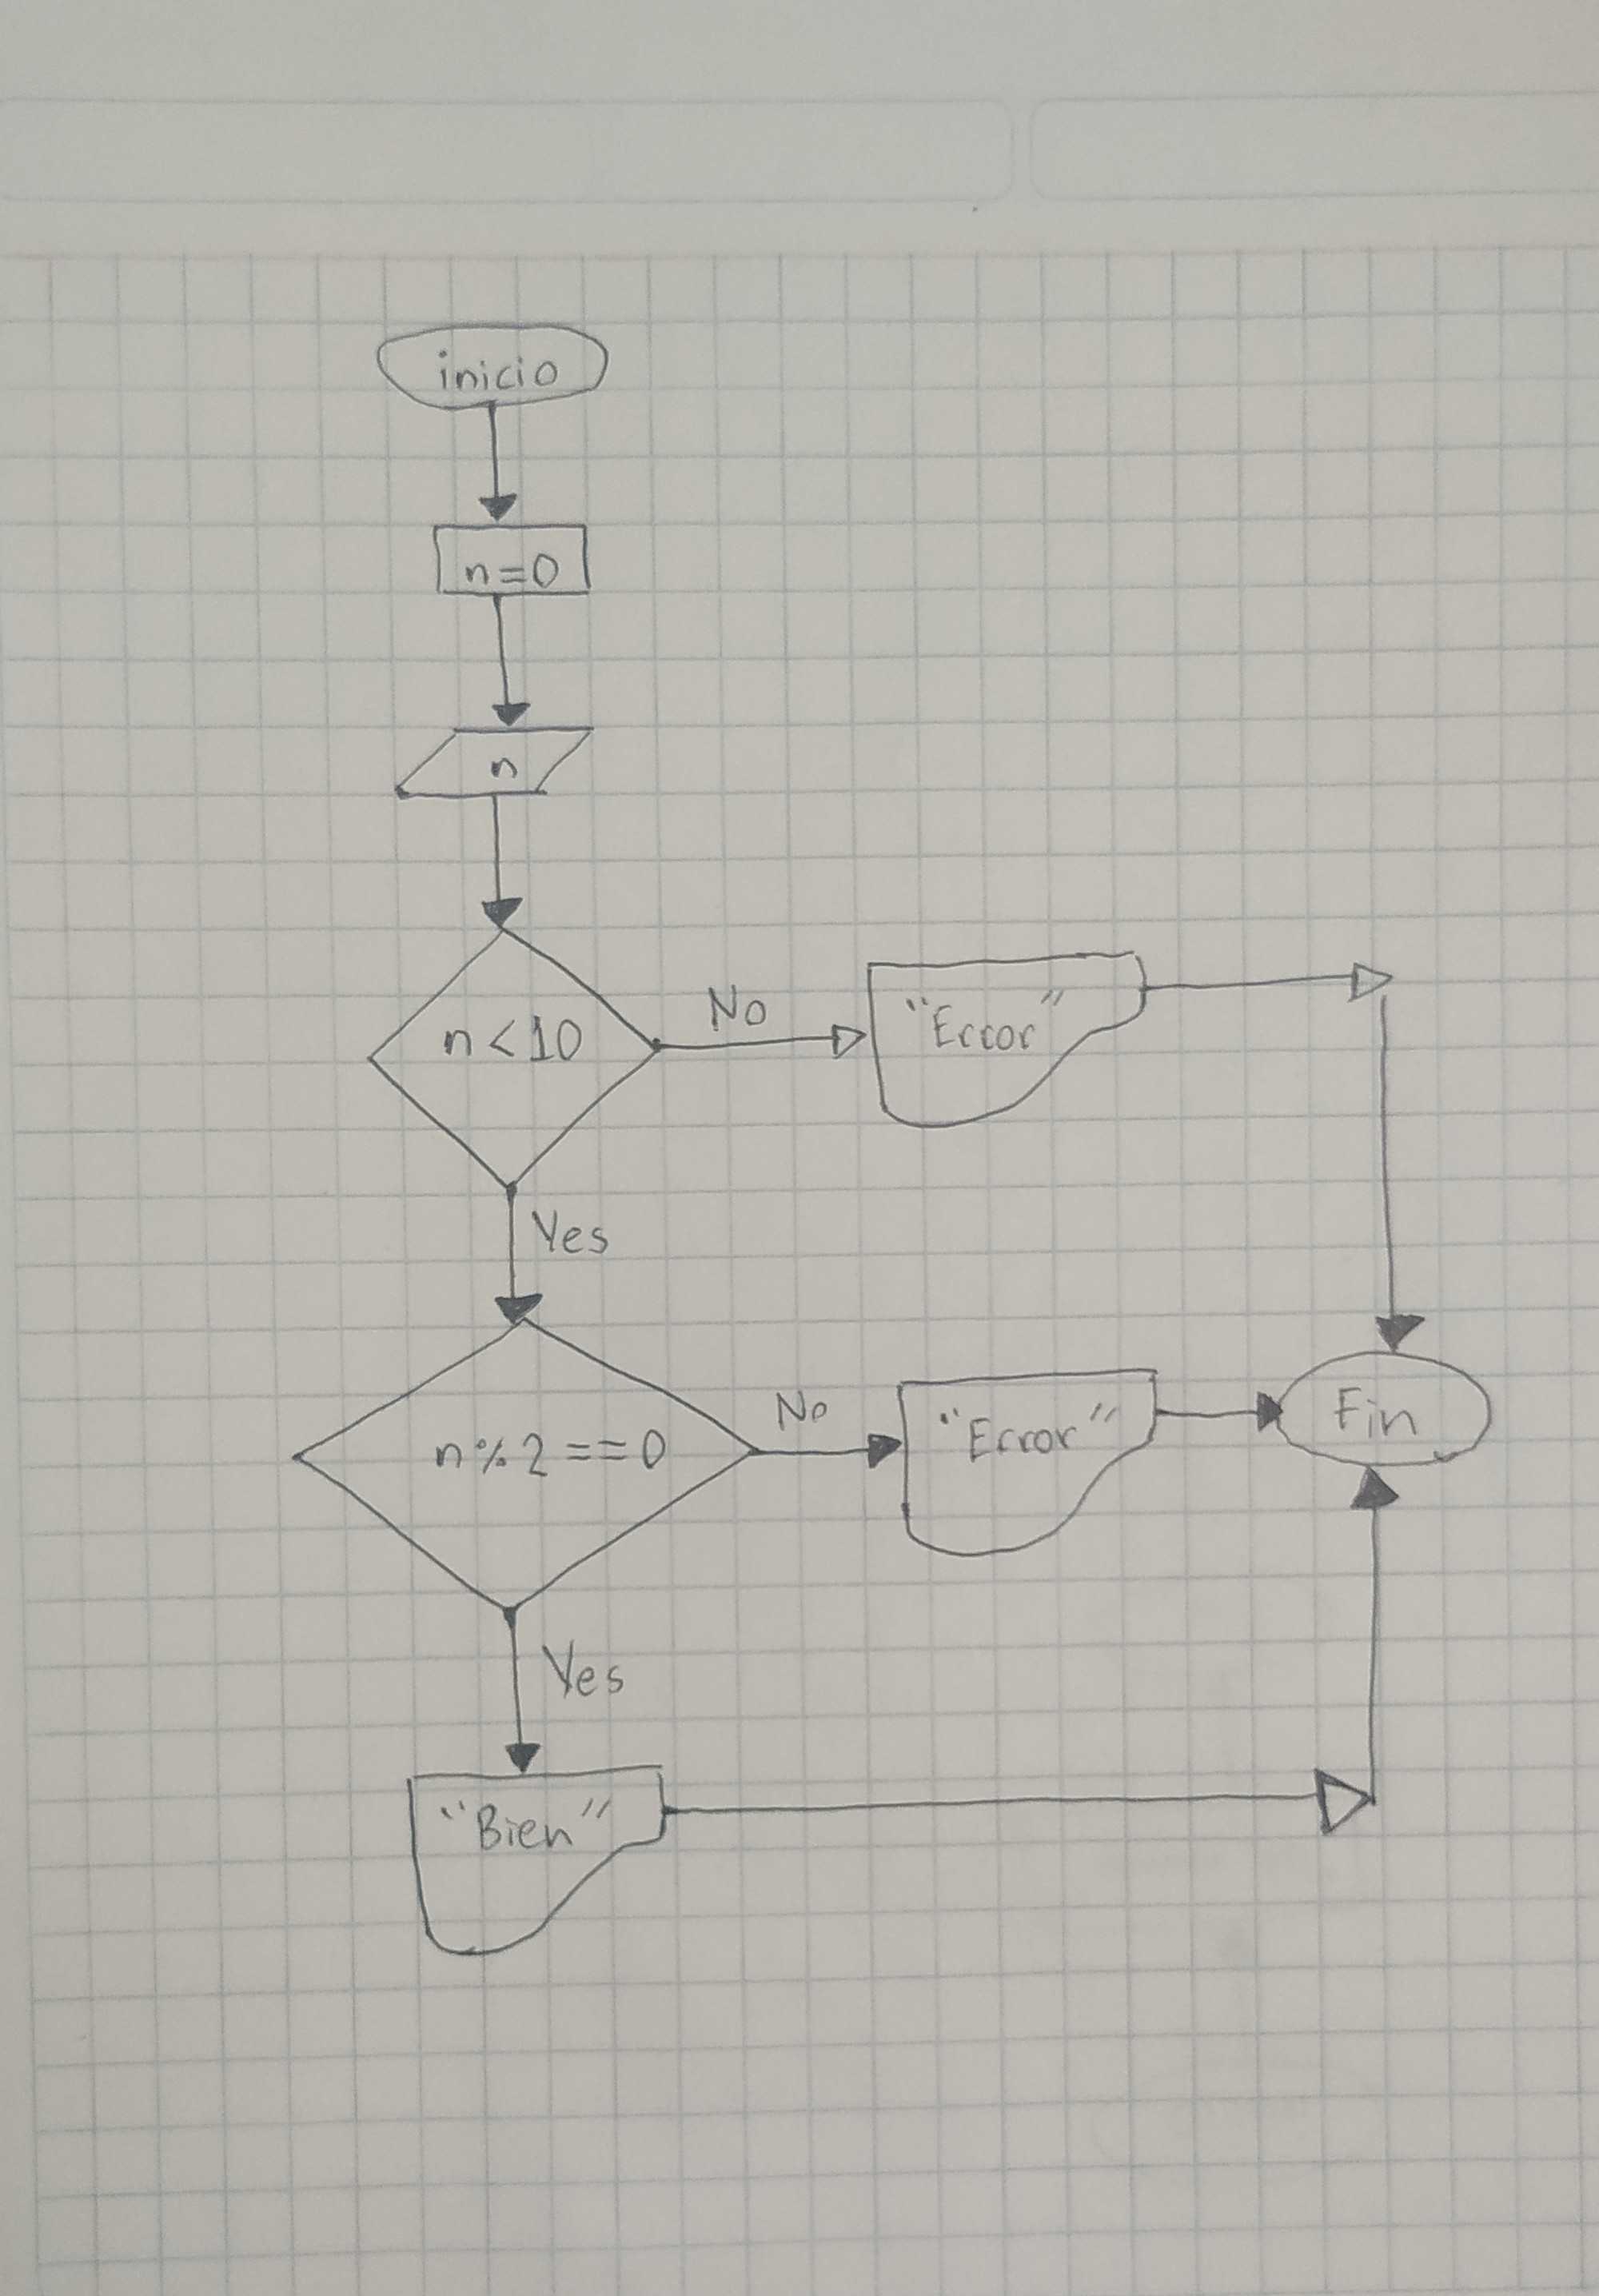 inicio
n=0
n
n<10
No
"Error"
Yes
n%2==0
No
"Error"
Fin
Yes
"Bien"